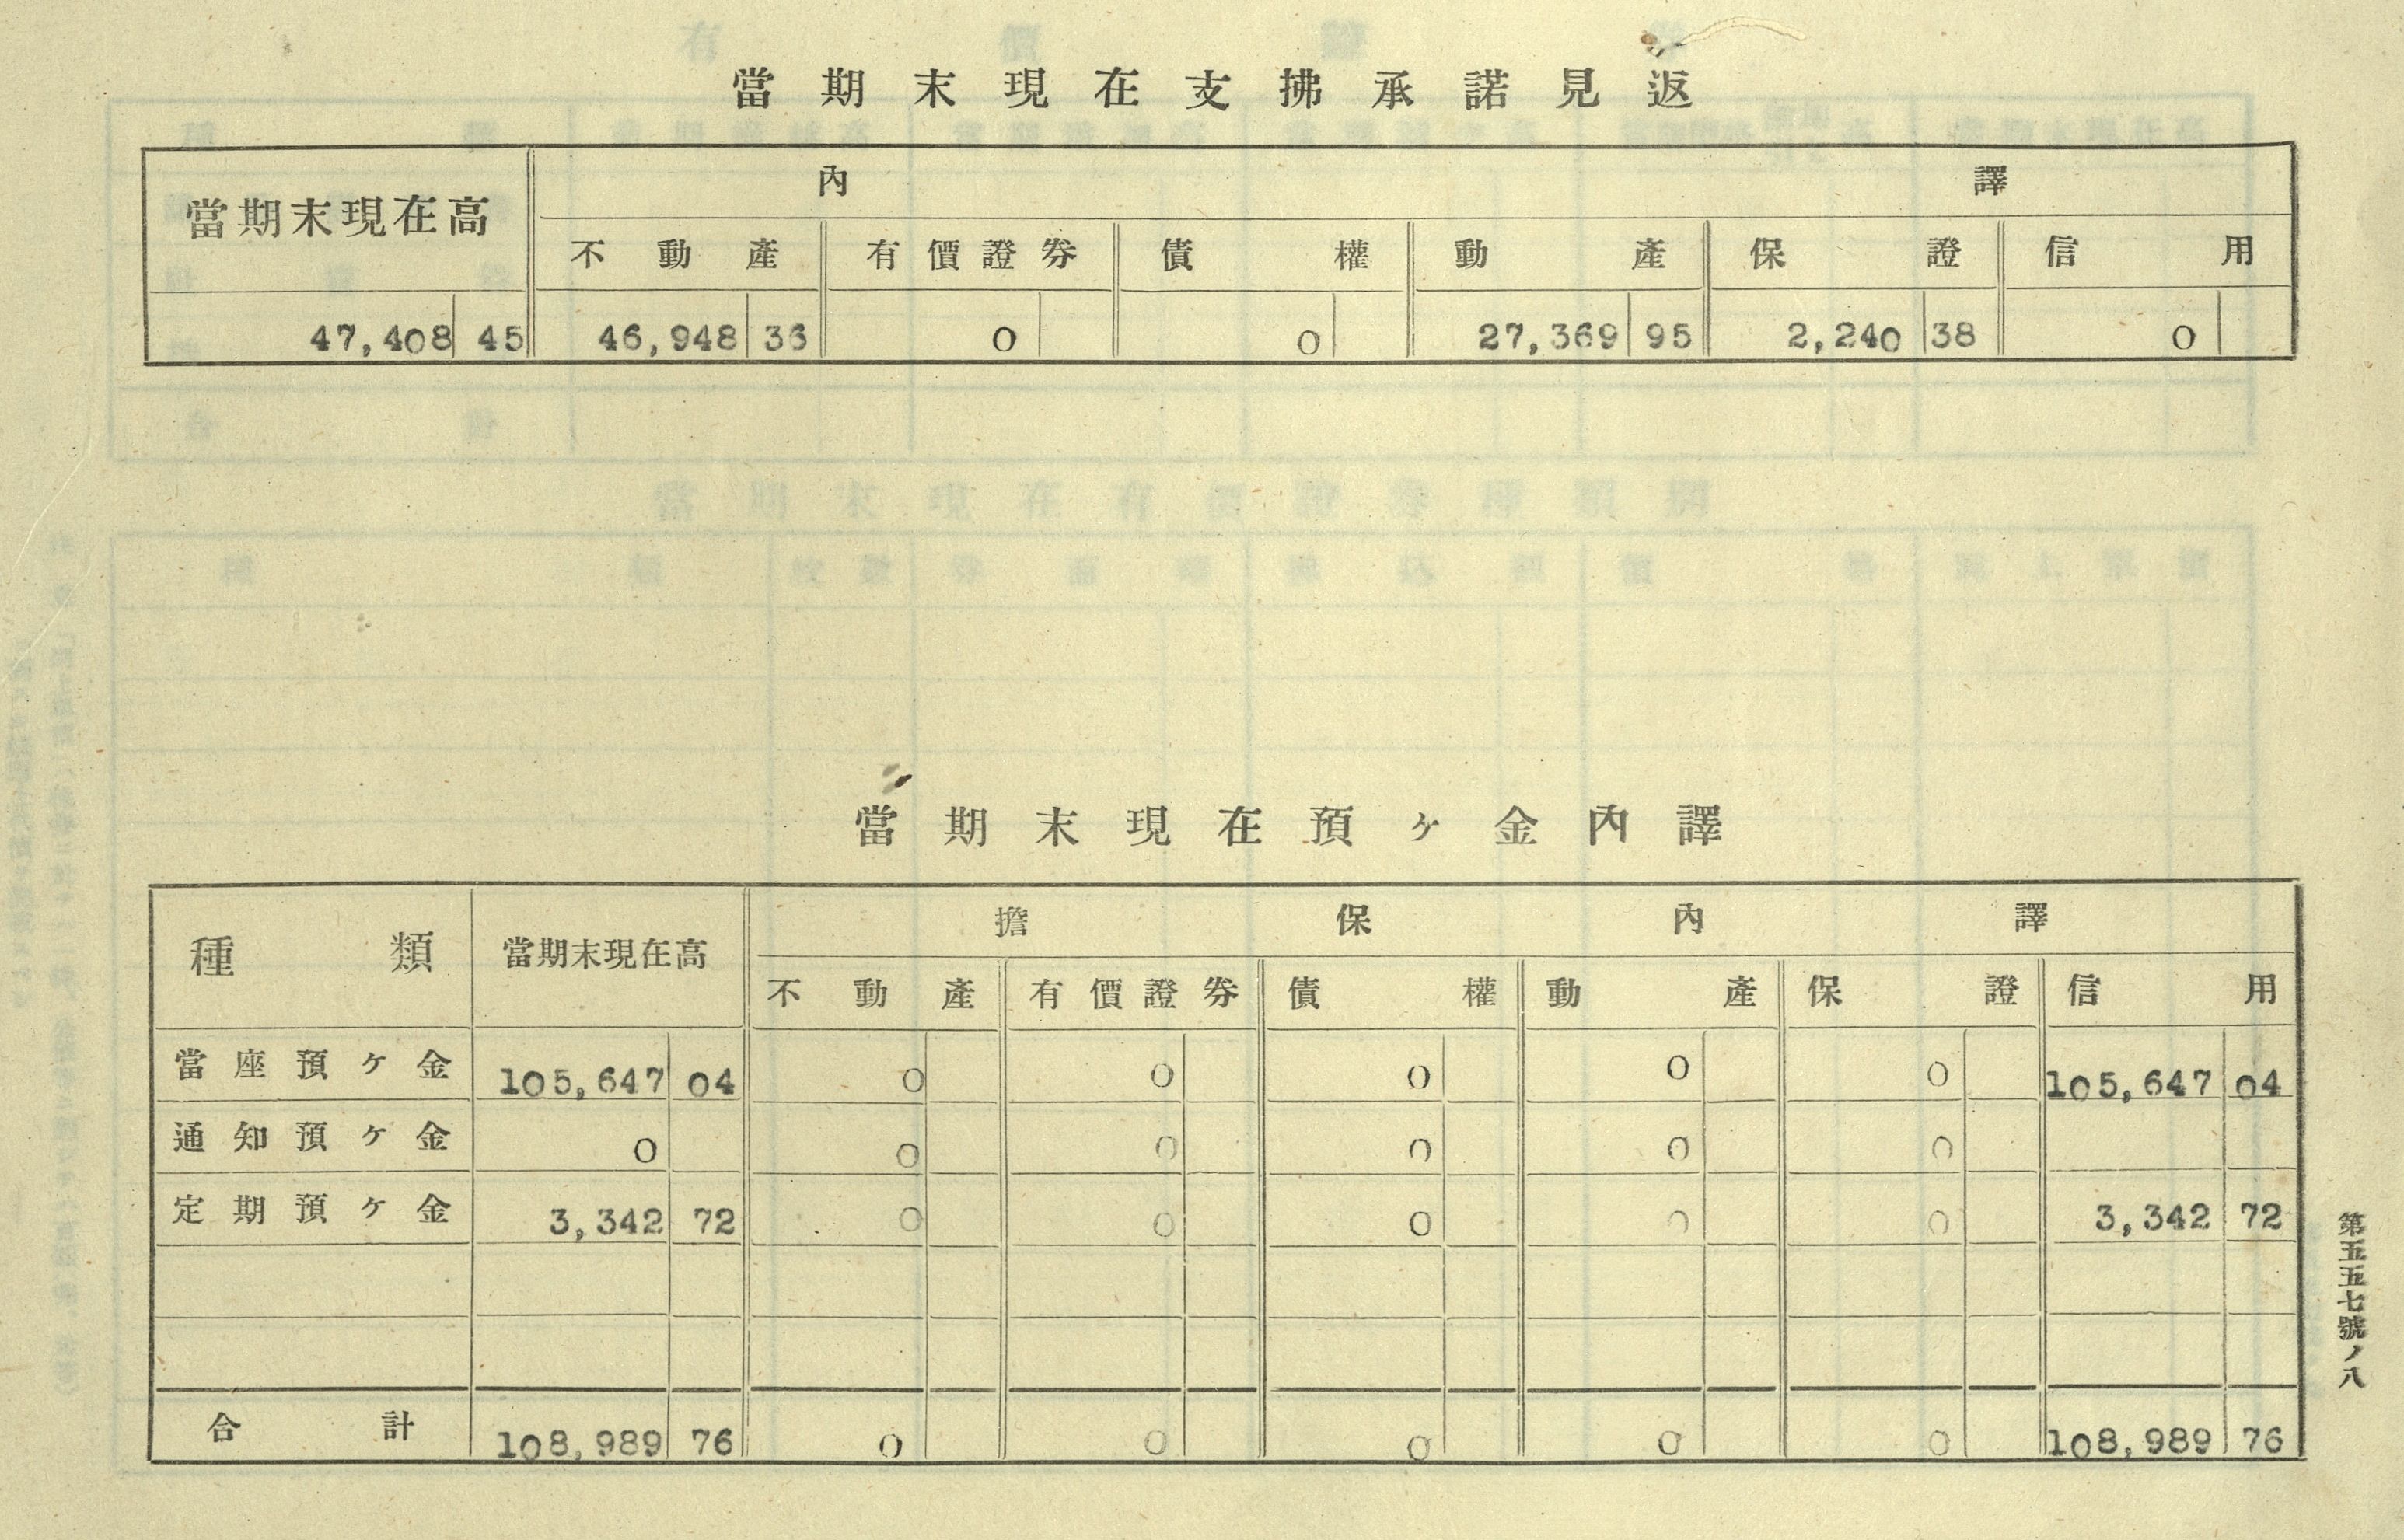 當期末現在支拂承諾見返
當期末現在高 內譯
不動產 有價證券 債權 動產 保證 信用
47,408 45 46,948 36 0 0 27,369 95 2,240 38 0
當期末現在預ヶ金內譯
種類 當期末現在高 擔保內譯
不動產 有價證券 債權 動產 保證 信用
當座預ヶ金 105,647 04 0 0 0 0 0 105,647 04
通知預ヶ金 0 0 0 0 0 0
定期預ヶ金 3,342 72 0 0 0 0 0 3,342 72
合計 108,989 76 0 0 0 0 0 108,989 76
第五五七號ノ八